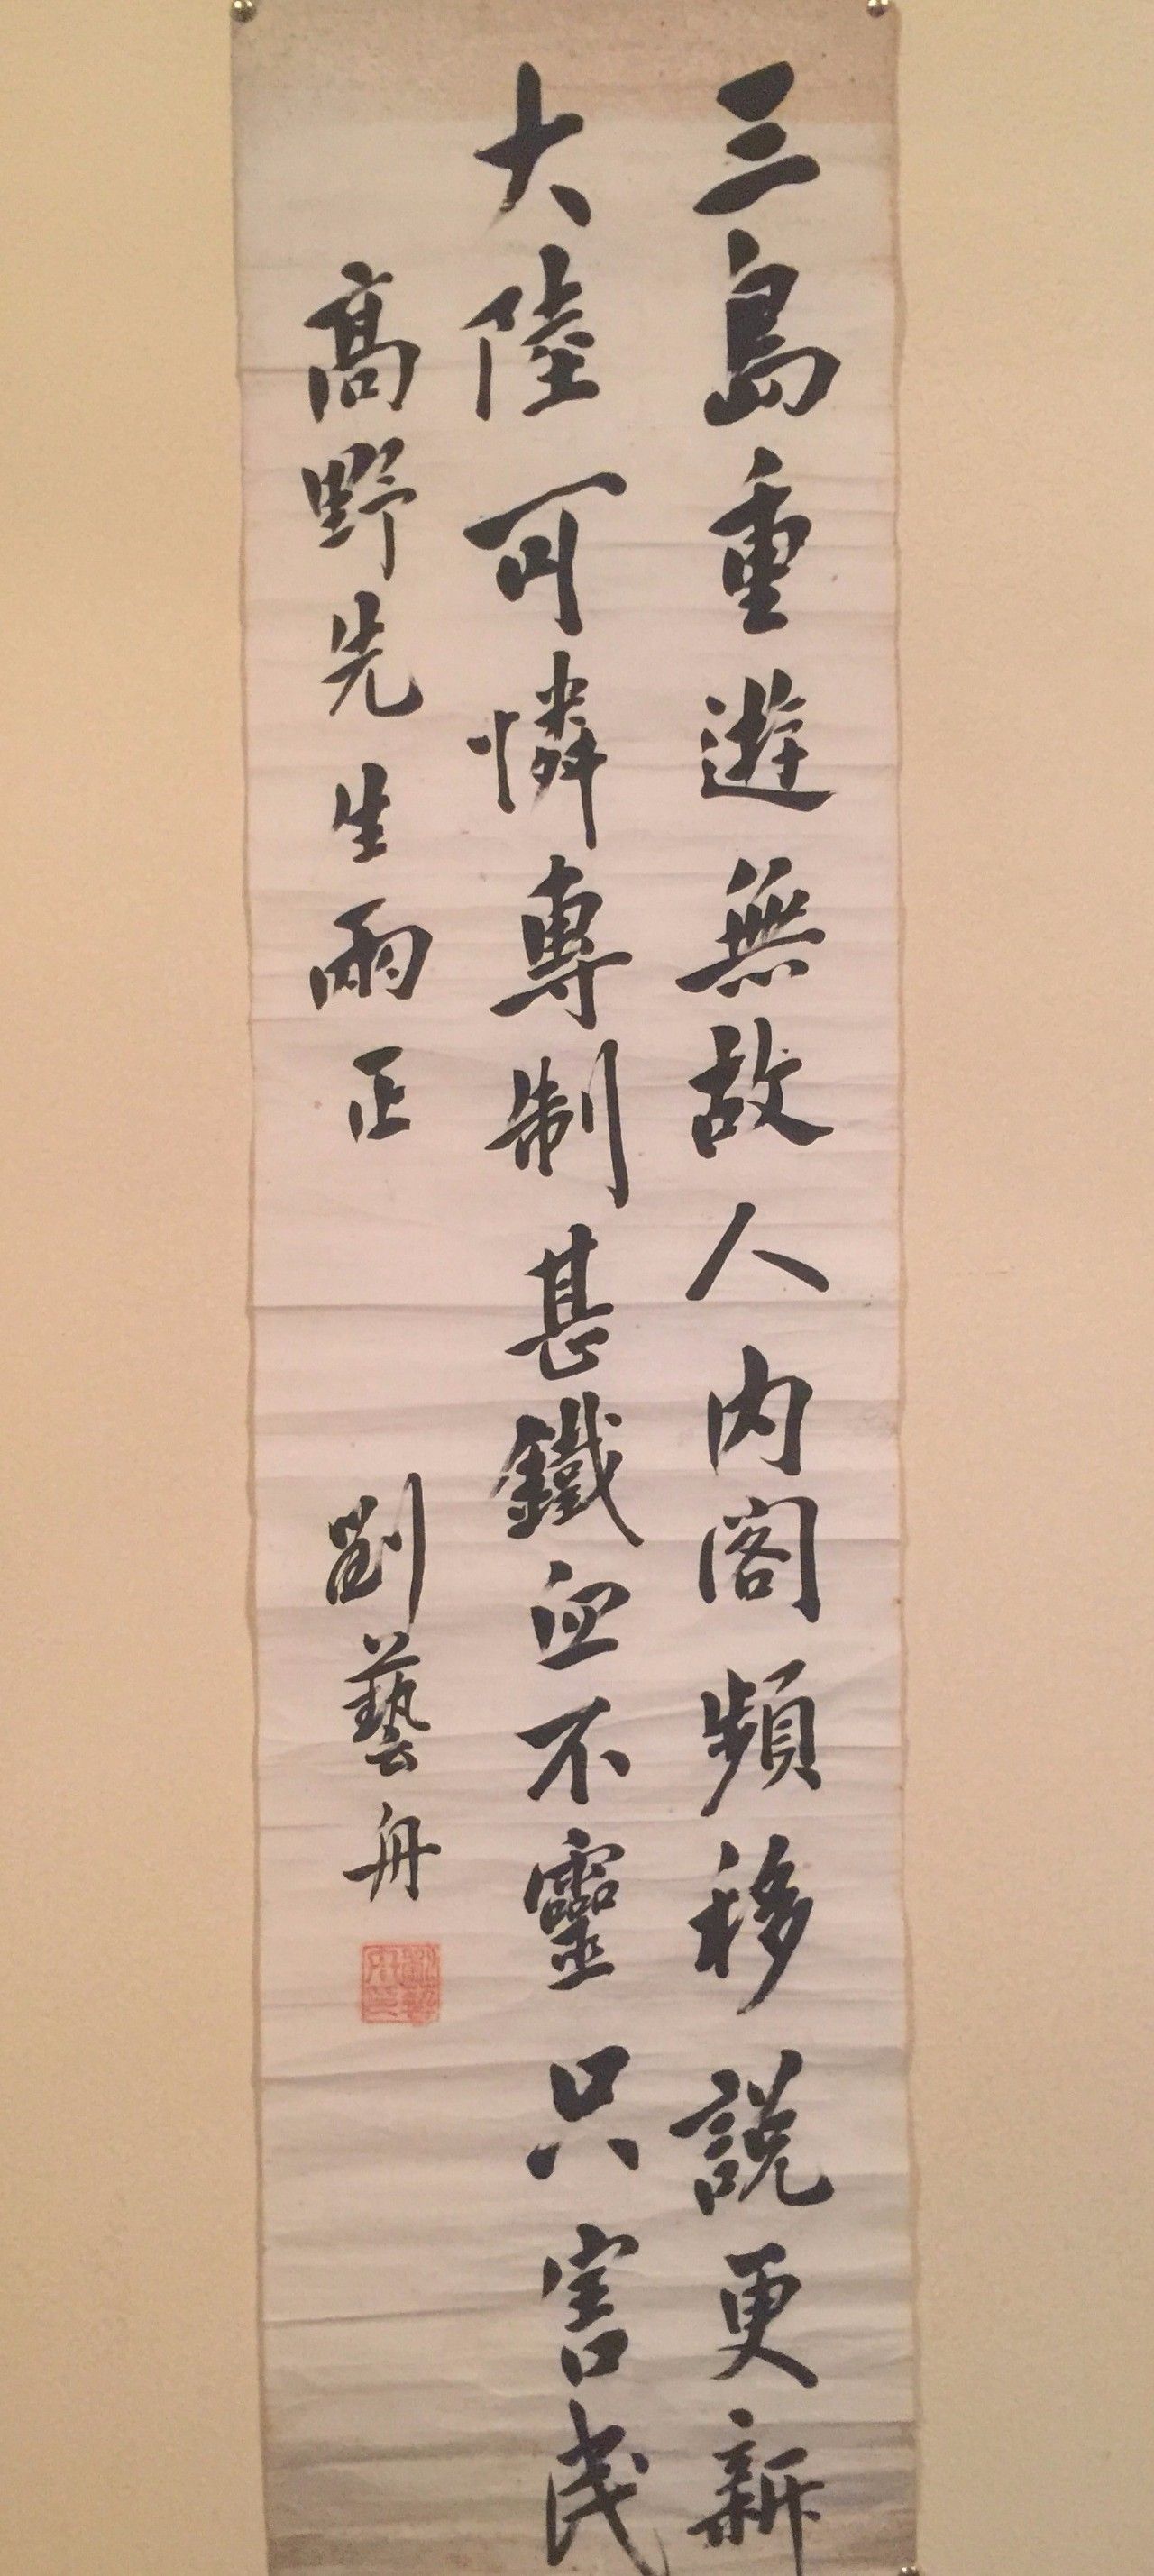 三島重遊無故人内閣頻移説更新
大陸可憐專制甚鐵血不靈只害民
高野先生雨正
劉藝舟
劉藝舟印